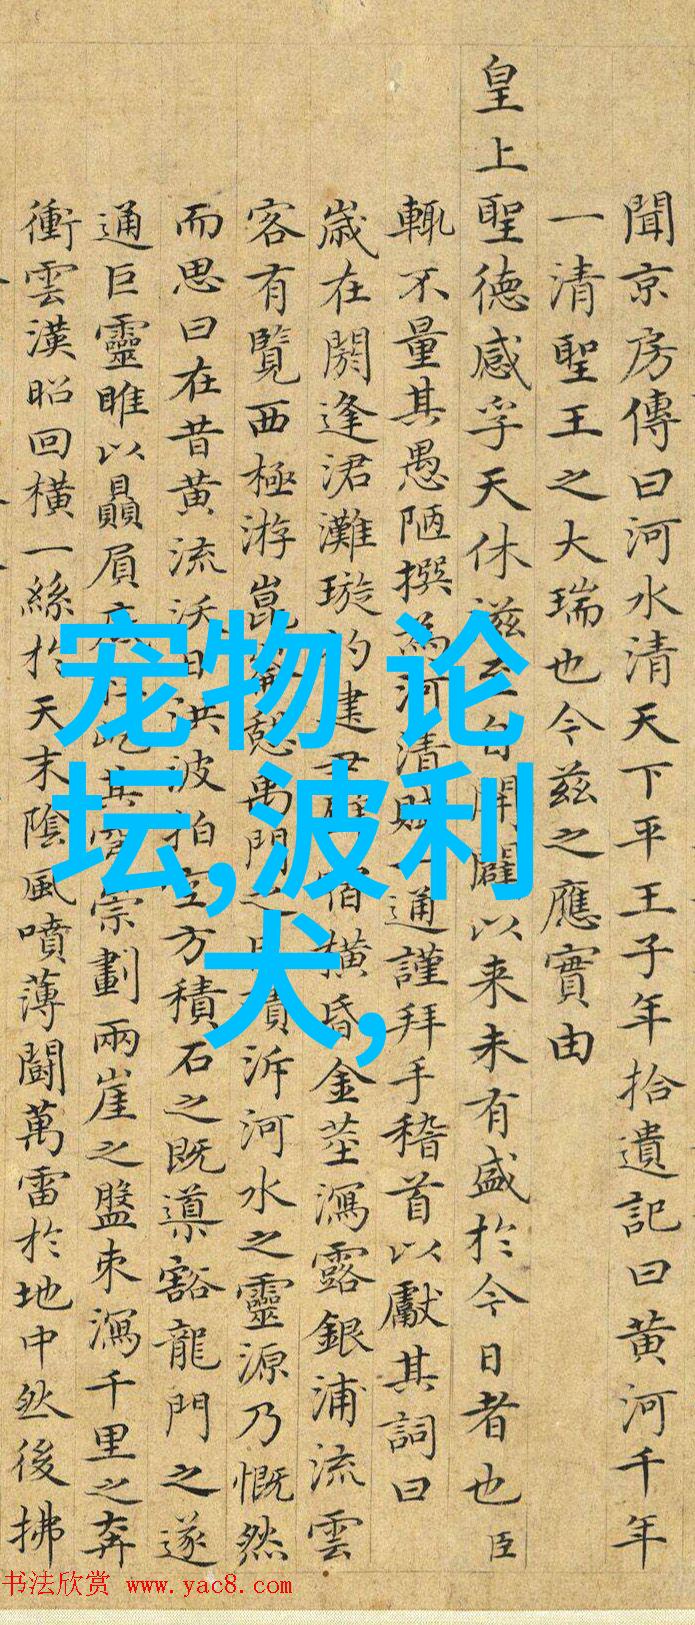 聞京房傳曰河水清天下平王子年拾遺記曰黃河千年
一清聖王之大瑞也今茲之應實由
皇上聖德感孚天休滋至自開闢以来未有盛於今日者也臣
輒不量其愚陋撰為河清賦一通謹拜手稽首以獻其詞曰
歲在閼逢涒灘璇杓建宿橫昏金莖瀉露銀浦流雲
客有覽西極游崑崙憩禹門之積泝河水之靈源乃慨然
而思曰在昔黃流沃日洪波拍空方積石之既導豁龍門之遂
通巨靈雎以贔屓其宗劃兩崖之盤束瀉千里之奔
衝雲漢昭回橫一絲於天末陰風噴薄鬪萬雷於地中然後拂
宠物 论
坛,波利
犬,
书法欣赏 www.yac8.com